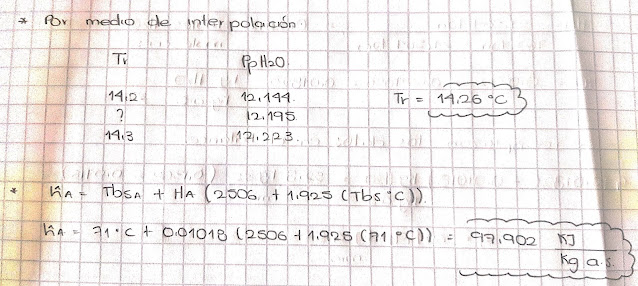 * Por medio de interpolación.
Tr PpH2O.
14,2 12,144.
? 12,195
14,3 12,223
Tr = 14,26 °C
* ĥA = TbSA + HA (2506 + 1,925 (Tbs °C))
ĥA = 71°C + 0,01018 (2506 + 1,925 (71 °C)) = 97,902 KJ
Kg a.s.